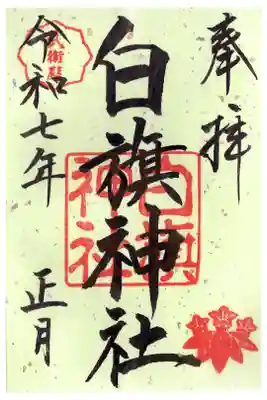 奉拝
白旗神社
白旗神社
令和七年
正月